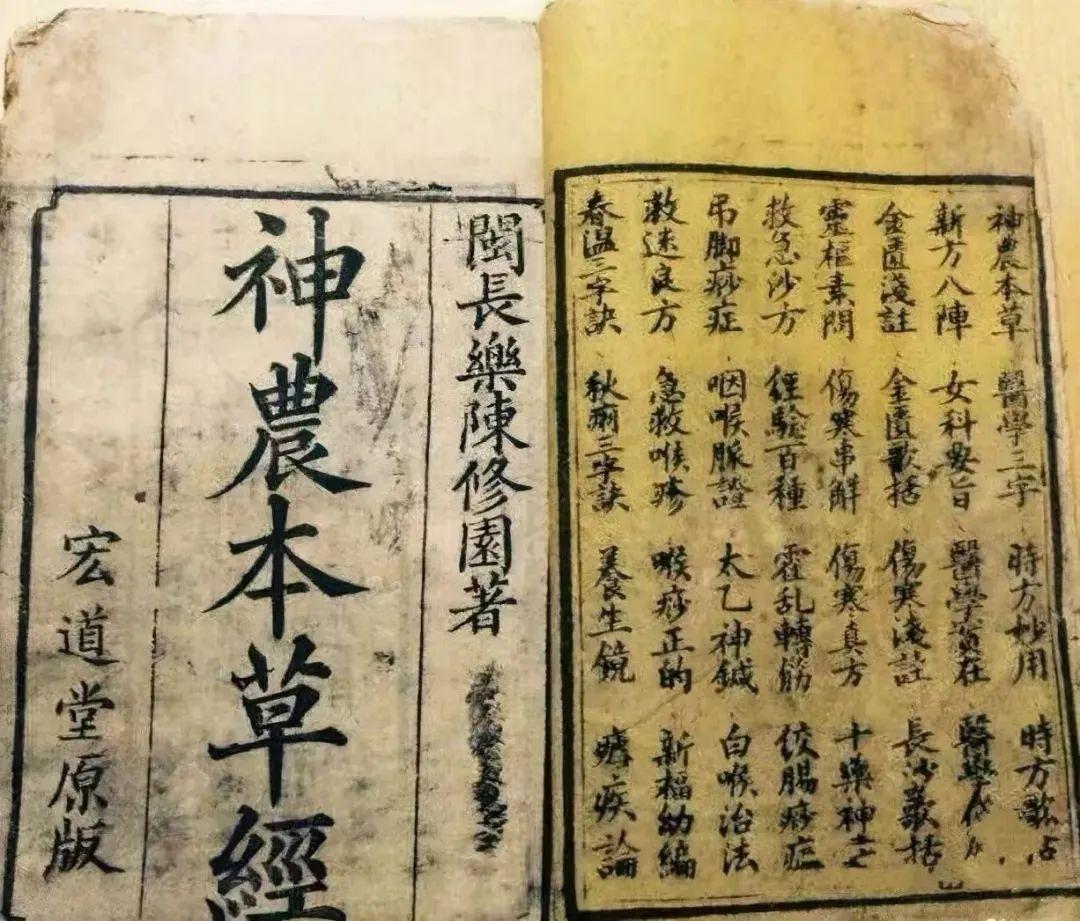 神農本草 醫學三字 時方妙用 時方歌
新方八陣 女科要旨 醫學實在 醫學
金匱淺註 金匱歌括 傷寒淺註 長沙歌括
靈樞素問 傷寒串解 傷寒真方 十藥神
救急沙方 經驗百種 霍乱轉筋 絞腸痧症
吊脚痧症 咽喉脈證 太乙神鍼 白喉治法
救迷良方 急救喉疹 喉痧正的 新福幼編
春温三字訣 秋三字訣 養生鏡 疾論
閩長樂陳修園著
神農本草經
宏道堂原版